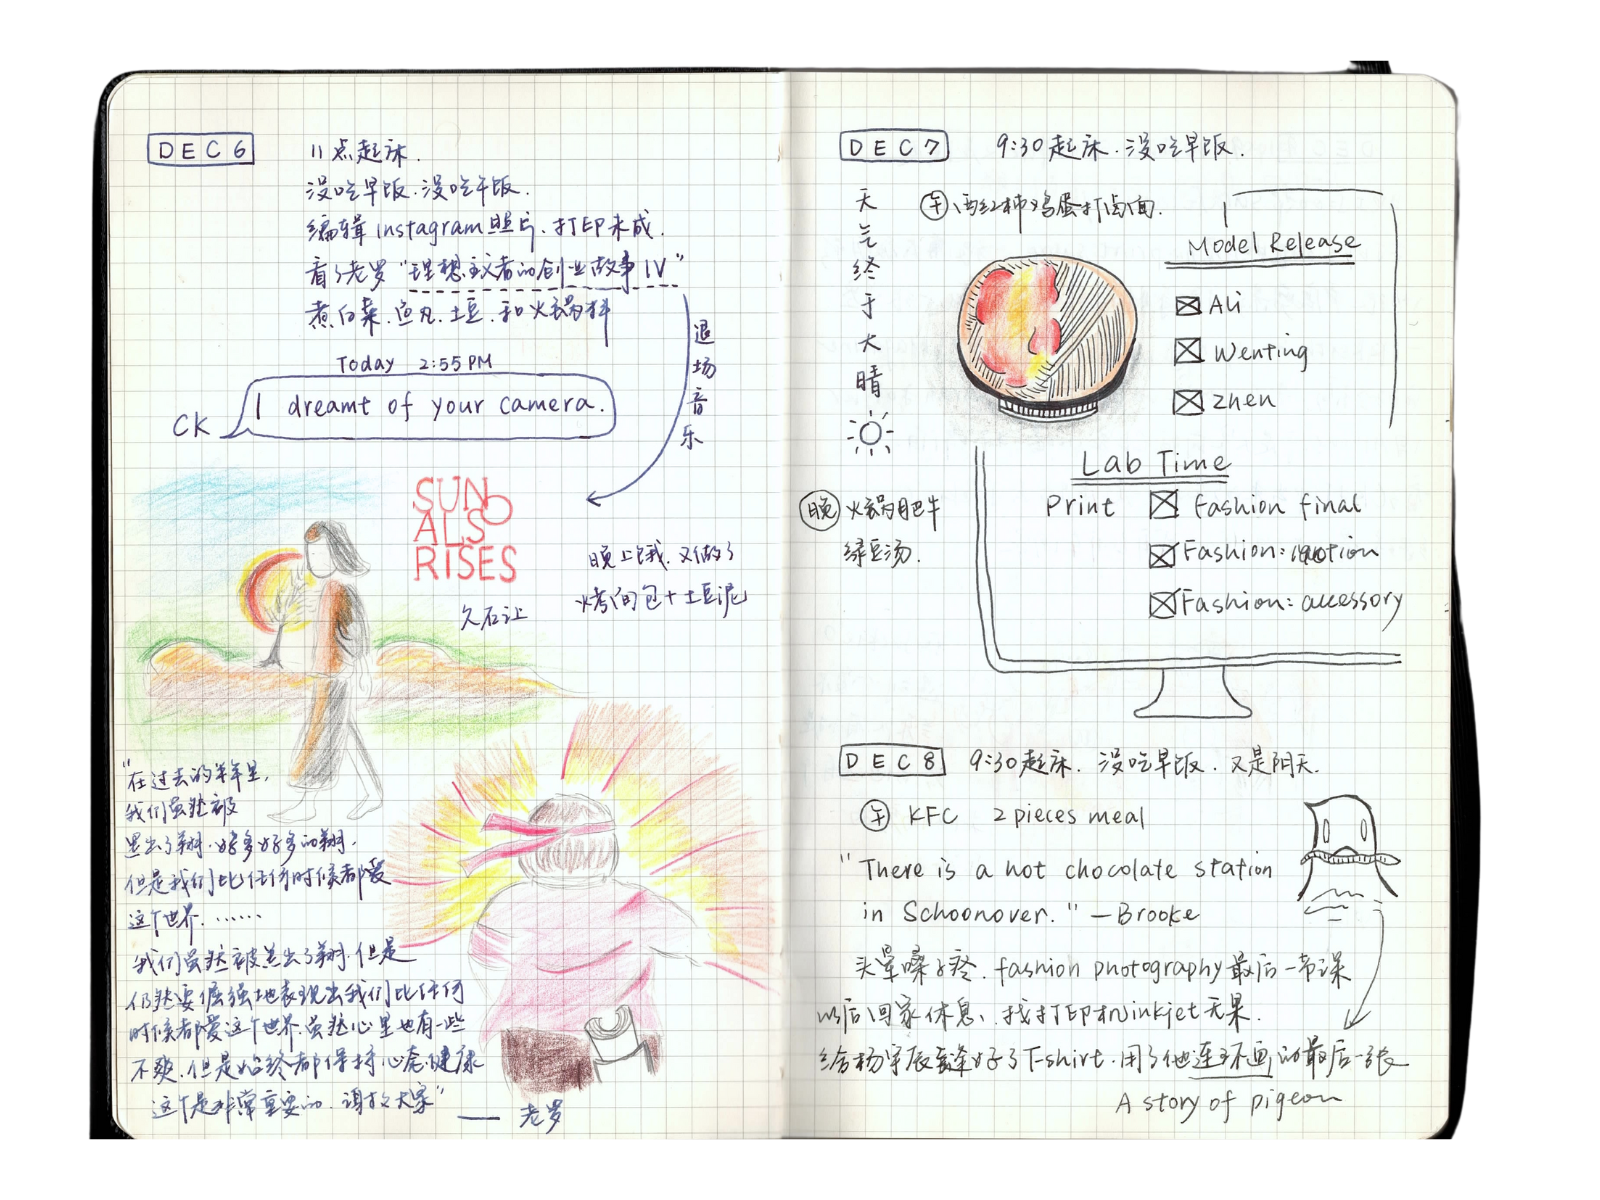 DEC 6
11点起床.
没吃早饭.没吃午饭.
编辑instagram照片.打印未成.
看了老罗"理想主义者的创业故事IV"
煮白菜.鱼丸.土豆.和火锅料
退场音乐
Today 2:55PM
CK
I dreamt of your camera.
SUN
ALSO
RISES
久石让
晚上饿.又做了
烤面包+土豆泥
"在过去的半年里,
我们虽然被
黑出了翔.好多好多的翔.
但是我们比任何时候都爱
这个世界.……
我们虽然被黑出了翔.但是
仍然要倔强地表现出我们比任何
时候都爱这个世界.虽然心里也有一些
不爽.但是始终都保持心态健康
这个是非常重要的.谢谢大家"
—— 老罗
DEC 7
9:30起床.没吃早饭.
天气终于大晴
午 西红柿鸡蛋打卤面.
Model Release
Ali
Wenting
Zhen
Lab Time
Print
Fashion final
Fashion: motion
Fashion: accessory
晚 火锅肥牛
绿豆汤.
DEC 8
9:30起床.没吃早饭.又是阴天.
午 KFC 2 pieces meal
"There is a hot chocolate station
in Schoonover." —Brooke
头晕嗓子疼.fashion photography最后一节课
以后回家休息、找打印机inkjet无果.
给杨宇辰缝好了T-shirt.用了他连环画的最后一张
A story of pigeon